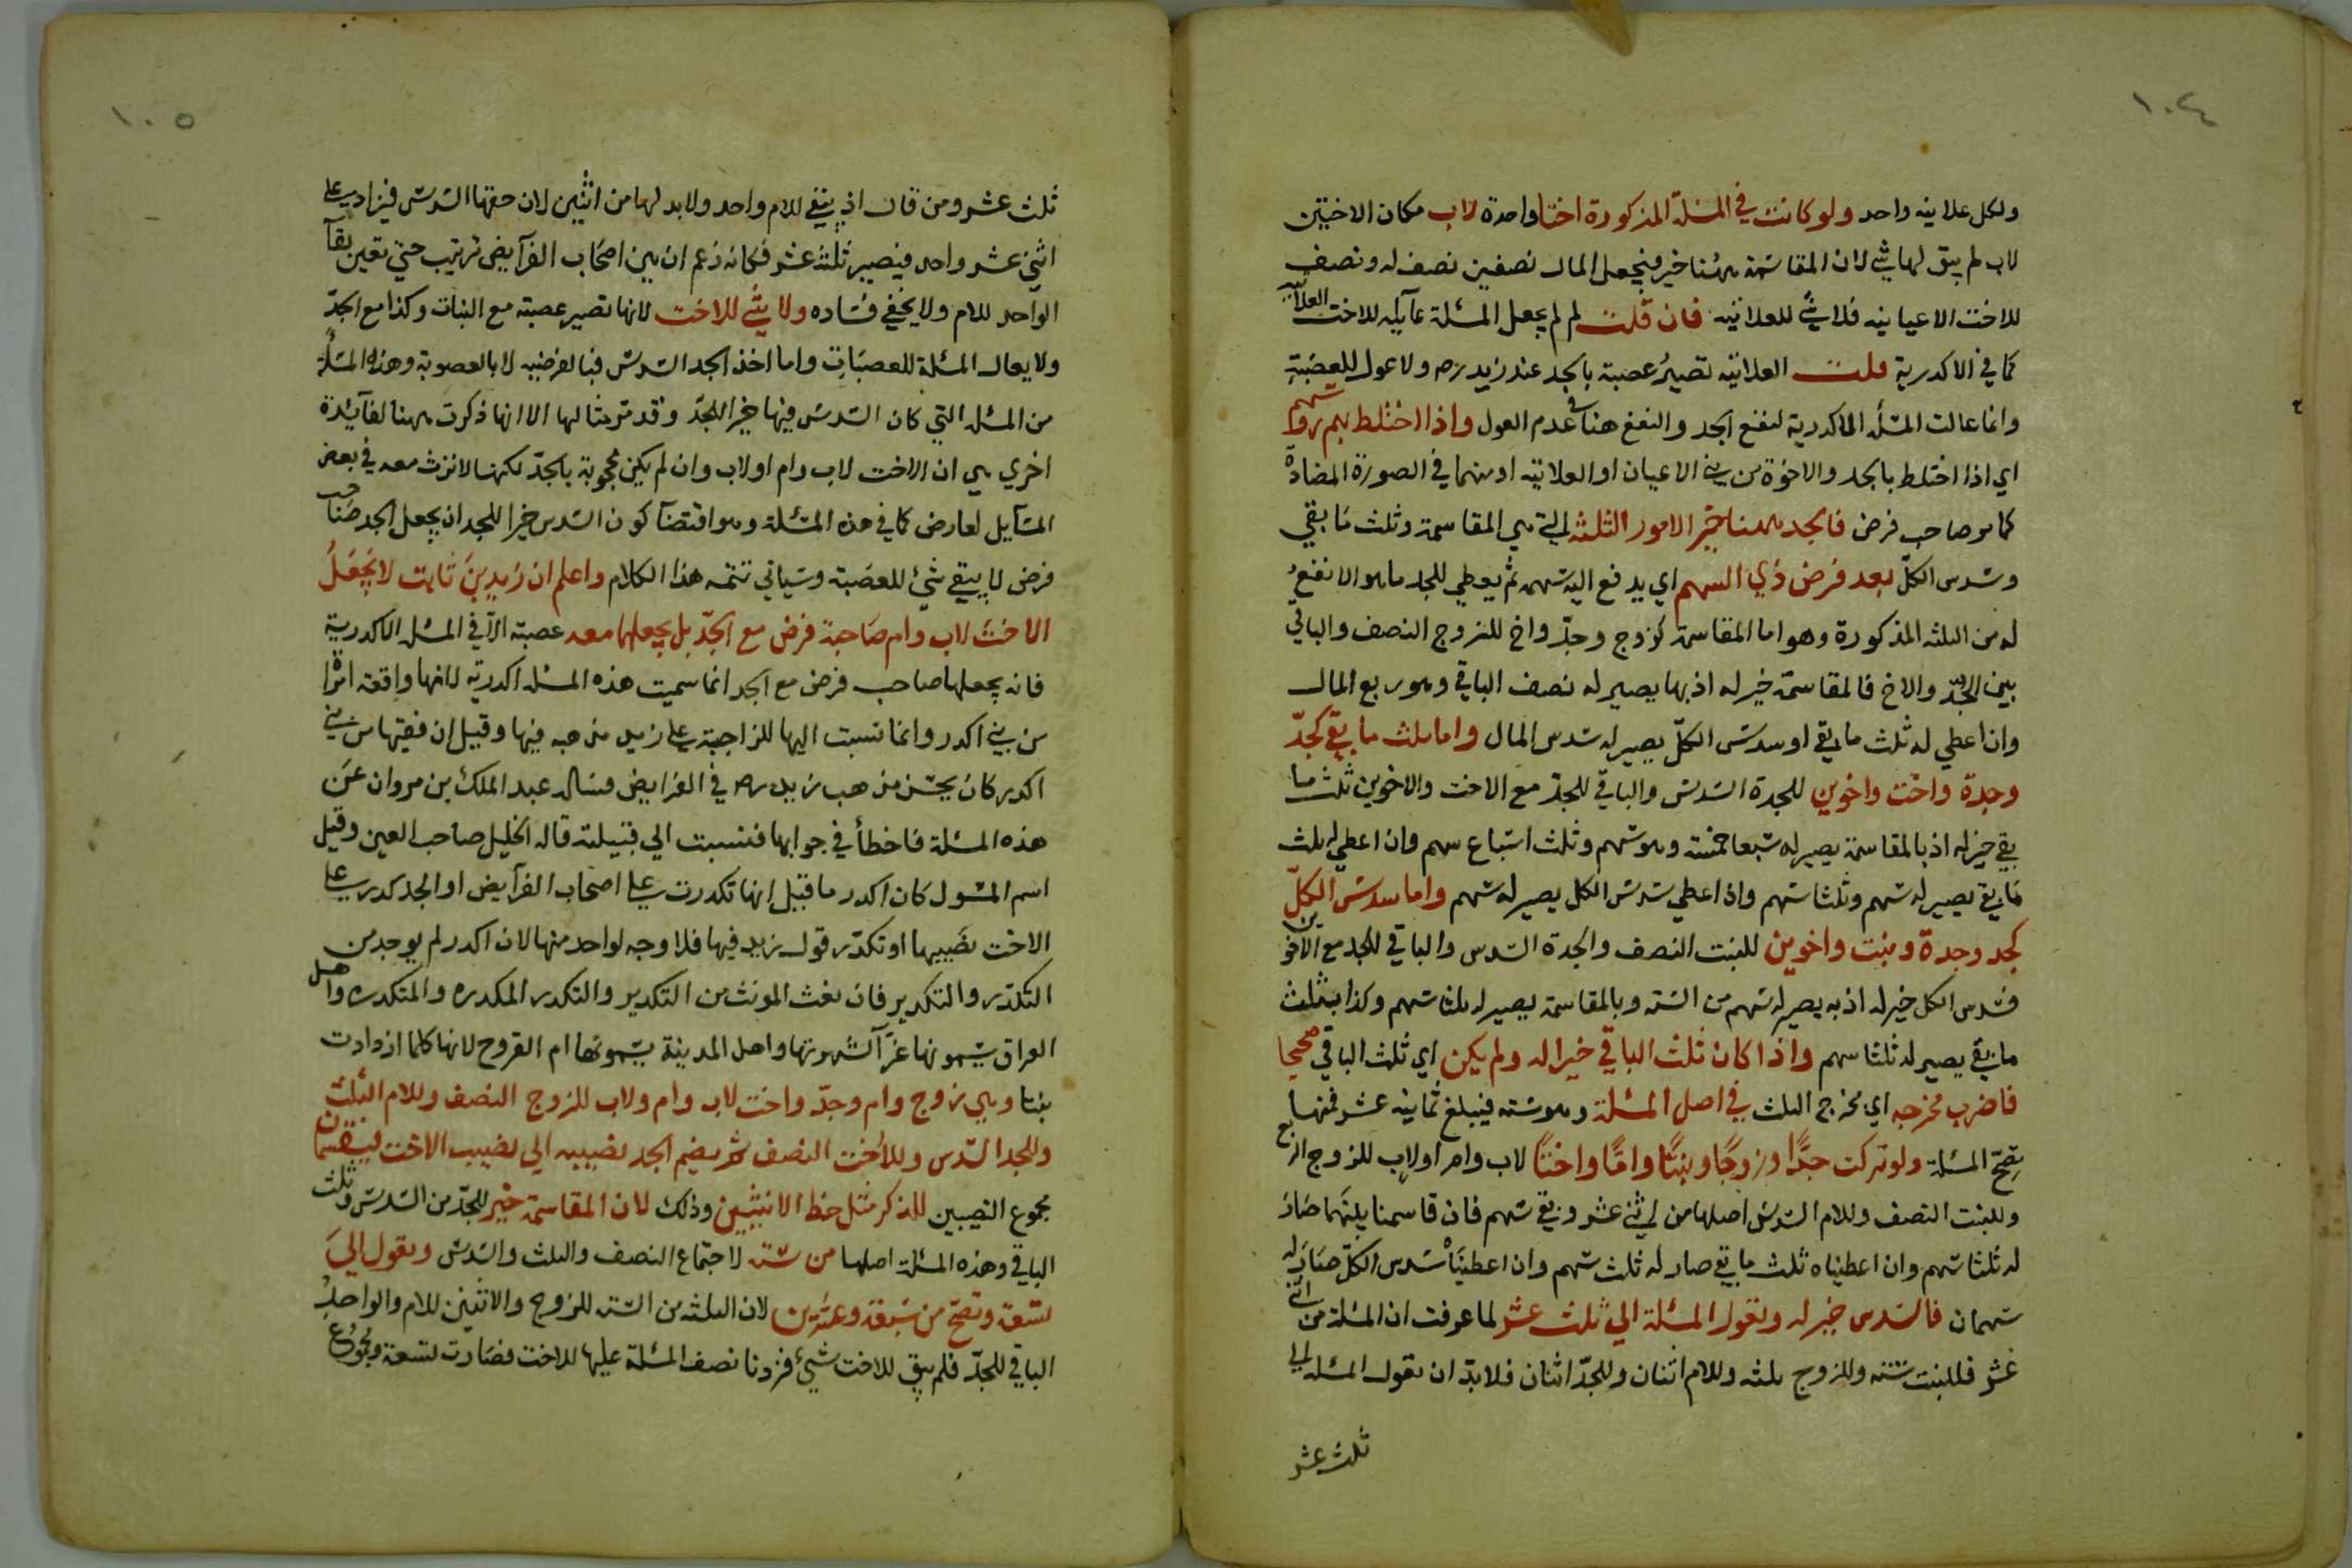 ١٠٤
ولكل علاتيه واحد ولو كانت في المسئلة المذكورة اختا واحدة لاب مكان الاختين
لاب لم يبق لها شئ لان المقاسمة ههنا خير فيجعل المال نصفين نصف له ونصف
للاخت الاعيانيه فلا شئ للعلاتيه فان قلت لم لم يجعل المسئلة عآيله للاخت العلاتيه
كما في الاكدرية قلت العلاتيه تصير عصبة بالجد عند زيد رضه ولا عول للعصبة
وانما عالت المسئلة الاكدرية لنفع الجد والنفع هنا في عدم العول واذا اختلط بهم ذو سهم
اي اذا اختلط بالجد والاخوة من بني الاعيان او العلاتيه او منهما في الصورة المضادة
كما مر صاحب فرض فالجد ههنا خير الامور الثلثه التي هي المقاسمة وثلث ما بقي
وسدس الكل بعد فرض ذي السهم اي يدفع اليه سهمه ثم يعطي للجد ما هو الانفع
له من الثلثه المذكورة وهو اما المقاسمة كزوج وجد واخ للزوج النصف والباقي
بين الجد والاخ فالمقاسمة خير له اذ بها يصير له نصف الباقي وهو ربع المال
وان اعطي له ثلث ما بقي او سدس الكل يصير له سدس المال واما ثلث ما بقي كجد
وجدة واخت واخوين للجدة السدس والباقي للجد مع الاخت والاخوين ثلث ما
بقي خير له اذ بالمقاسمة يصير له سبعا خمسة وهو سهم وثلث اسباع سهم وان اعطي له ثلث
ما بقي يصير له سهم وثلثا سهم واذا اعطي سدس الكل يصير له سهم واما سدس الكل
كجد وجدة وبنت واخوين للبنت النصف والجدة السدس والباقي للجد مع الاخوين
فسدس الكل خير له اذ به يصير له سهم من السته وبالمقاسمة يصير له ثلثا سهم وكذا بثلث
ما بقي يصير له ثلثا سهم واذا كان ثلث الباقي خيرا له ولم يكن اي ثلث الباقي صحيحا
فاضرب مخرجه اي مخرج الثلث في اصل المسئلة وهو سته فيبلغ ثمانيه عشر فمنها
تصح المسئلة ولو تركت جدا وزوجا وبنتا واما واختا لاب وام او لاب للزوج الربع
وللبنت النصف وللام السدس اصلها من اثني عشر وبقي سهم فان قاسمنا بينهما صار
له ثلثا سهم وان اعطيناه ثلث ما بقي صار له ثلث سهم وان اعطيناه سدس الكل صار له
سهمان فالسدس خير له وتعول المسئلة الي ثلث عشر لما عرفت ان المسئلة من اثني
عشر فللبنت سته وللزوج ثلثه وللام اثنان وللجد اثنان فلا بد ان تعول المسئلة الي
ثلث عشر
١٠٥
ثلث عشر ومن قال اذ يبقي للام واحد ولا بد لها من اثنين لان حقها السدس فيزاد علي
اثني عشر واحد فيصير ثلثة عشر فكانه زعم ان بين اصحاب الفرآيض ترتيب حتي تعين بقآ
الواحد للام ولا يخفي فساده ولا شئ للاخت لانها تصير عصبة مع البنات وكذا مع الجد
ولا يعال المسئلة للعصبات واما اخذ الجد السدس فبالفرضيه لا بالعصوبة وهذه المسئلة
من المسئلة التي كان السدس فيها خيرا للجد وقد مر مثالها الا انها ذكرت ههنا لفآيدة
اخري هي ان الاخت لاب وام او لاب وان لم يكن محجوبة بالجد لكنها لا ترث معه في بعض
المسآيل لعارض كما في هذه المسئلة وهو اقتضآ كون السدس خيرا للجد ان يجعل الجد صاحب
فرض لا يبقي شئ للعصبة وسياتي تتمه هذا الكلام واعلم ان زيد بن ثابت لا يجعل
الاخت لاب وام صاحبة فرض مع الجد بل يجعلها معه عصبة الا في المسئلة الاكدرية
فانه يجعلها صاحب فرض مع الجد انما سميت هذه المسئلة اكدرية لانها واقعة امرأ
من بني اكدر وانما نسبت اليها للزاجية علي زيد مذهبه فيها وقيل ان فقيها من بني
اكدر كان يحسن مذهب زيد رضه في الفرايض فسال عبد الملك بن مروان عن
هذه المسئلة فاخطأ في جوابها فنسبت الي قبيلته قاله الخليل صاحب العين وقيل
اسم المسئول كان اكدر ما قيل انها تكدرت علي اصحاب الفرآيض او الجد كدر علي
الاخت نصيبها او تكدر قول زيد فيها فلا وجه لواحد منها لان اكدر لم يوجد من
التكدر والتكدير فان نعث المونث من التكدير والتكدر المكدره والمتكدره واهل
العراق يسمونها غرآ لشهرتها واهل المدينة يسمونها ام الفروح لانها كلما ازدادت
بنتا وهي زوج وام وجد واخت لاب وام ولاب للزوج النصف وللام الثلث
وللجد السدس وللاخت النصف ثم يضم الجد نصيبه الي نصيب الاخت ليقتسمان
مجموع النصيبين للذكر مثل حظ الانثيين وذلك لان المقاسمة خير للجد من السدس وثلث
الباقي وهذه المسئلة اصلها من سته لاجتماع النصف والثلث والسدس وتعول الي
تسعة وتصح من سبعة وعشرين لان الثلثه من السته للزوج والاثنين للام والواحد
الباقي للجد فلم يبق للاخت شئ فزدنا نصف المسئلة عليها للاخت فصارت تسعة ومجموع